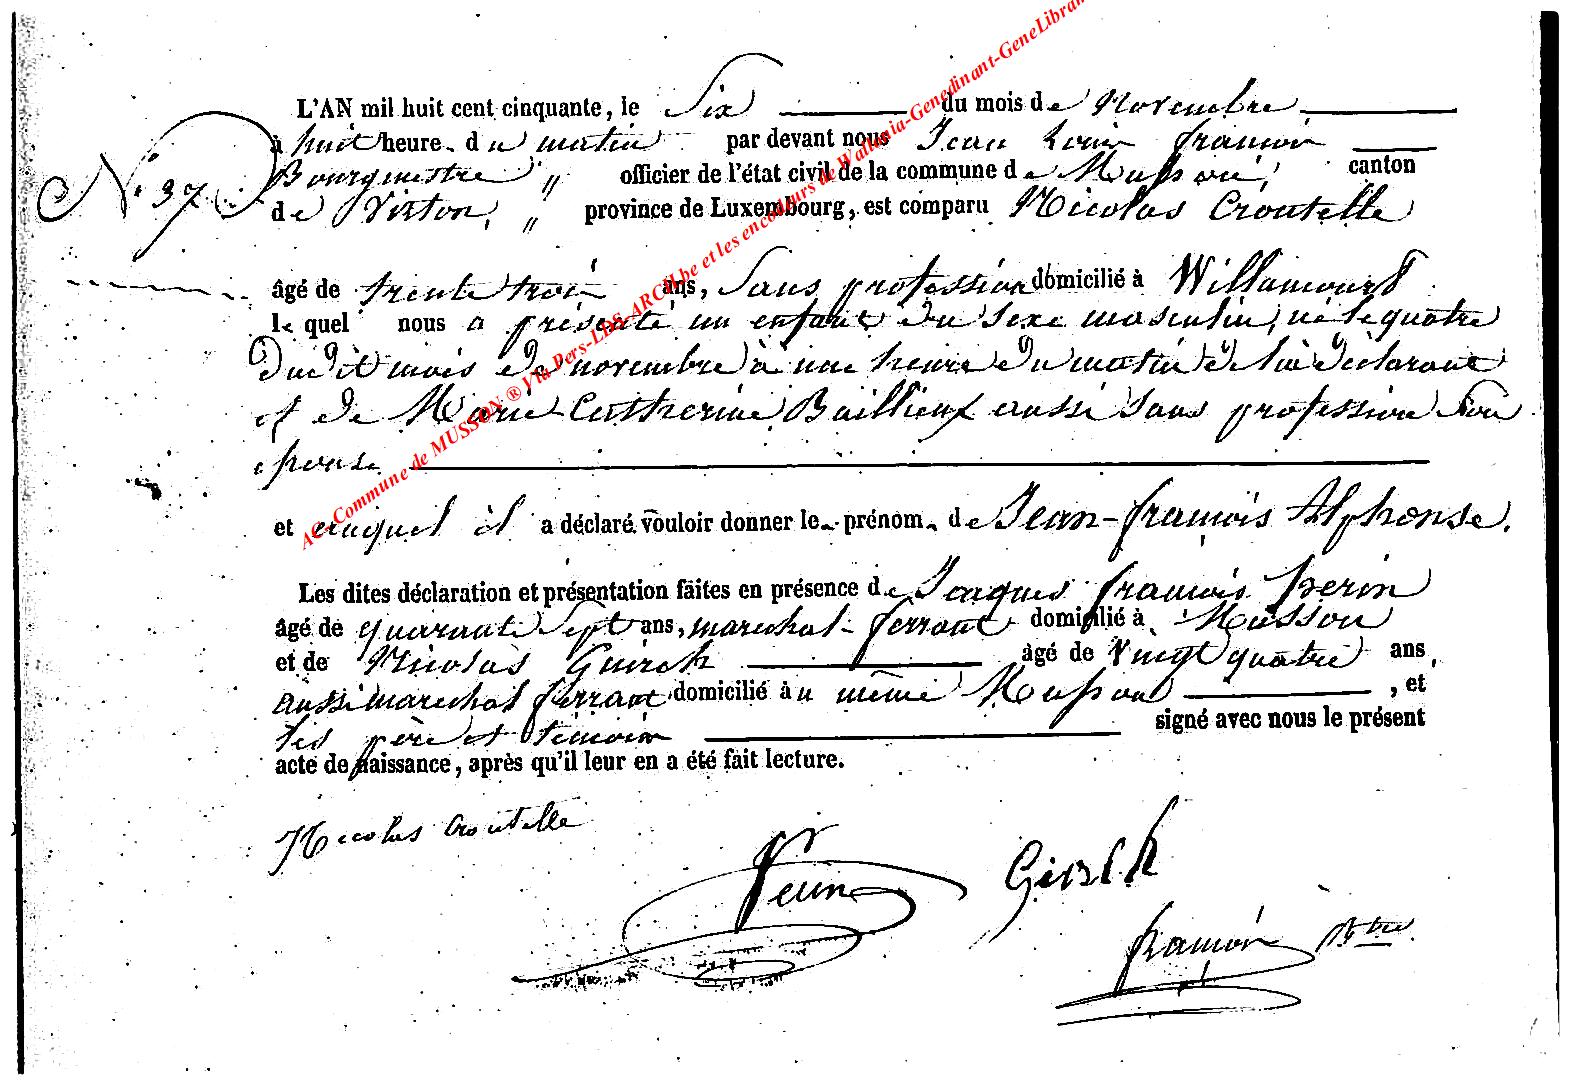 L'AN mil huit cent cinquante, le Six du mois de Novembre
à huit heure du matin par devant nous Jean Louis françois
N° 37
Bourgmestre " officier de l'état civil de la commune de Musson, canton
de Virton, " province de Luxembourg, est comparu Nicolas Croutelle
âgé de trente trois ans, Sans profession domicilié à Willancourt
le quel nous a présenté un enfant du sexe masculin, né le quatre
dudit mois de novembre à une heure du matin de lui déclarant
et de Marie Catherine Baillieux aussi sans profession son
épouse
et auquel il a déclaré vouloir donner le prénom de Jean-françois Alphonse.
Les dites déclaration et présentation faites en présence de Jacques françois perin
âgé de quarante Sept ans, marechal-ferrant domicilié à Musson
et de Nicolas Guirch âgé de vingt quatre ans,
aussi marechal ferrant domicilié au même Musson, et
les père et témoin signé avec nous le présent
acte de naissance, après qu'il leur en a été fait lecture.
Nicolas Croutelle
Perin
françois Bstre.
AC-Commune de MUSSON ® Via Pers-LDS-ARCH.be et les encodeurs de Wallonia-Genedinant-GeneLibran